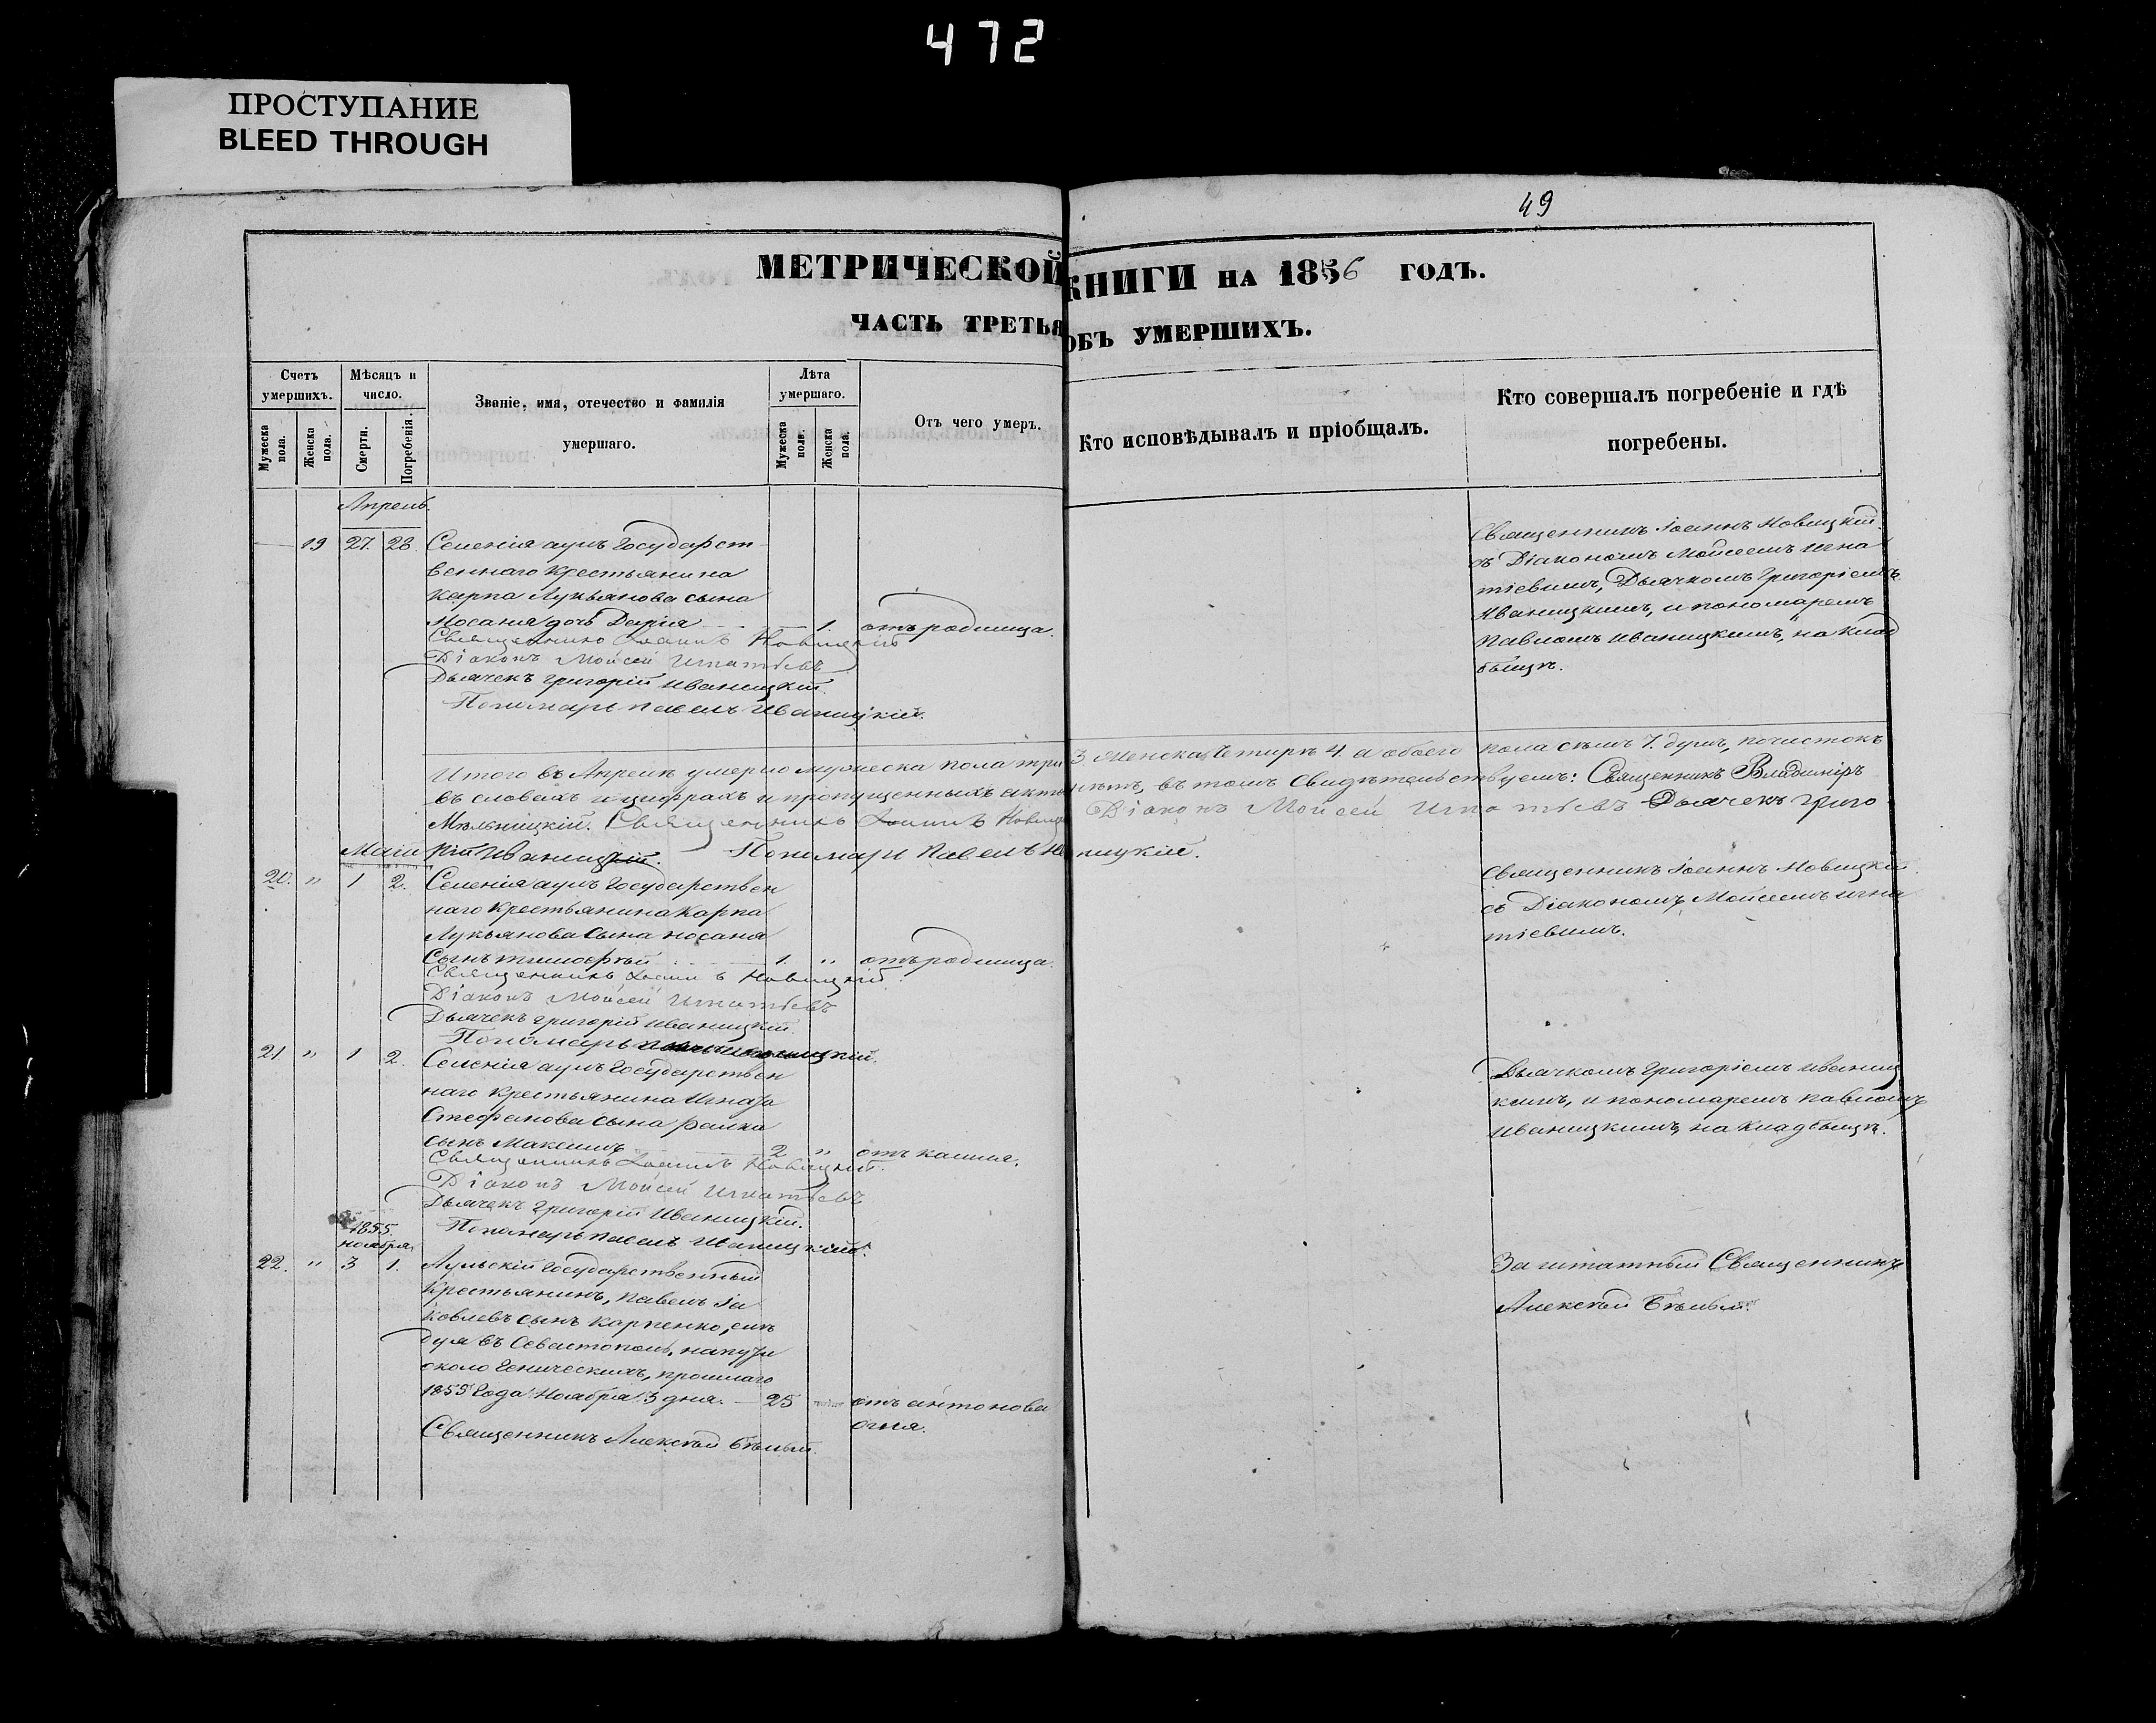 472
ПРОСТУПАНИЕ
BLEED THROUGH
49
МЕТРИЧЕСКОЙ КНИГИ НА 1856 ГОДЪ.
ЧАСТЬ ТРЕТЬЯ ОБЪ УМЕРШИХЪ.
Счетъ умершихъ.
Мужеска пола.
Женска пола.
Мѣсяцъ и число.
Смерти.
Погребенія.
Званіе, имя, отечество и фамилія умершаго.
Лѣта умершаго.
Мужеска пола.
Женска пола.
Отъ чего умеръ.
Кто исповѣдывалъ и пріобщалъ.
Кто совершалъ погребеніе и гдѣ погребены.
Апрель.
19 27. 28. Селенія аулъ Государст
веннаго Крестьянина
Карпа Лукьянова сына
Носаня дочь Дарія 1. отъ родимца.
Священникъ Іоаннъ Новицкій
Діаконъ Мойсей Игнатьевъ
Дьячекъ Григорій Иваницкій.
Пономарь Павелъ Иваницкій.
Священникъ Іоаннъ Новицкій
съ Діакономъ Мойсеемъ Игна
тіевимъ, Дьячкомъ Григоріемъ
Иваницкимъ, и пономаремъ
Павломъ Иваницкимъ, на клад
бищѣ.
Итого въ Апрелѣ умерло мужеска пола три 3. Женска Четирѣ 4. а обоего пола семъ 7. душъ, почистокъ
въ словахъ и цифрахъ и пропущенныхъ актовъ нѣтъ, въ томъ Свидѣтельствуемъ: Священникъ Владиміръ
Мѣльницкій. Священникъ Іоаннъ Новицкій Діаконъ Мойсей Игнатьевъ Дьячекъ Григо
рій Иваницкій. Пономарь Павелъ Иваницкій.
Маій
20. " 1 2. Селенія аулъ Государствен
наго Крестьянина Карпа
Лукьянова Сына Носаня
Сынъ тимофѣй 1. " отъ родимца.
Священникъ Іоаннъ Новицкій
Діаконъ Мойсей Игнатьевъ
Дьячекъ Григорій Иваницкій.
Пономарь Павелъ Иваницкій.
Священникъ Іоаннъ Новицкій
съ Діакономъ Мойсеемъ Игна
тіевимъ.
21 " 1 2. Селенія аулъ Государствен
наго Крестьянина Игната
Стефанова Сына
сынъ Максимъ 2 " отъ кашля.
Священникъ Іоаннъ Новицкій.
Діаконъ Мойсей Игнатьевъ
Дьячекъ Григорій Иваницкій.
Пономарь Павелъ Иваницкій.
Дьячкомъ Григоріемъ Иваниц
кимъ, и пономаремъ Павломъ
Иваницкимъ, на кладбищѣ.
1855.
ноября
22. " 3 1. Аульскій Государственный
Крестьянинъ, Павелъ Іа
ковлевъ сынъ Карпенко,
въ Севастополь, на пути
около Геническимъ, прошлаго
1855 Года Ноября 3 дня. 25 отъ антонова
огня.
Священникъ Алексѣй Бѣлый.
Заштатный Священникъ
Алексѣй Бѣлый.